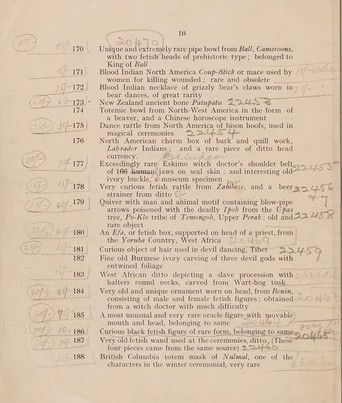 10
20470
170 Unique and extremely rare pipe bowl from Ball, Cameroons,
with two fetish heads of prehistoric type; belonged to
King of Ball
171 Blood Indian North America Coup-Stick or mace used by
women for killing wounded; rare and obsolete
172 Blood Indian necklace of grizzly bear's claws worn in
bear dances, of great rarity
173 New Zealand ancient bone Patupatu 22453
174 Totemic bowl from North-West America in the form of
a beaver, and a Chinese horoscope instrument
175 Dance rattle from North America of bison hoofs, used in
magical ceremonies 22454
176 North American charm box of bark and quill work,
Labrador Indians, and a rare piece of ditto head
currency.
177 Exceedingly rare Eskimo witch doctor's shoulder belt
of 166 human jaws on seal skin; and interesting old 22455
ivory buckle, a museum specimen
178 Very curious fetish rattle from Zambese, and a beer 22456
strainer from ditto
179 Quiver with man and animal motif containing blow-pipe
arrows poisoned with the deadly Ipoh from the Upas
tree, Po-Klo tribe of Temongoh, Upper Perak; old and 22458
rare object
180 An Efa, or fetish box, supported on head of a priest, from
the Yoruba Country, West Africa 20469
181 Curious object of hair used in devil dancing, Tibet 22459
182 Fine old Burmese ivory carving of three devil gods with
entwined foliage
183 West African ditto depicting a slave procession with
halters round necks, carved from Wart-hog tusk
184 Very old and unique ornament worn on head, from Benin,
consisting of male and female fetish figures; obtained
from a witch doctor with much difficulty
185 A most unusual and very rare oracle figure with movable
mouth and head, belonging to same
186 Curious black fetish figure of rare form, belonging to same
187 Very old fetish wand used at the ceremonies, ditto (These 20465
four pieces came from the same source) 22460
188 British Columbia totem mask of Nulmal, one of the
characters in the winter ceremonial, very rare